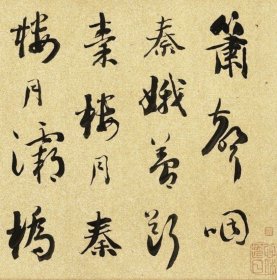 簫聲咽
秦娥夢斷
秦樓月秦
樓月灞橋